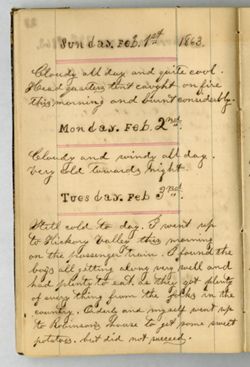 Sunday. Feb. 1st 1863.
Cloudy all day and quite cool.
Head quarters tent caught on fire
this morning and burnt considerbly.
Monday. Feb. 2nd.
Cloudy and windy all day.
Very cold towards night.
Tuesday. Feb 3rd.
Still cold to day. I went up
to Hickory Valley this morning
on the passenger train. I found the
boys all getting along very well and
had plenty to eat as they got plenty
of every thing from the folks in the
country. and myself went up
to Robinsons house to get some sweet
potatoes. but did not succeed.